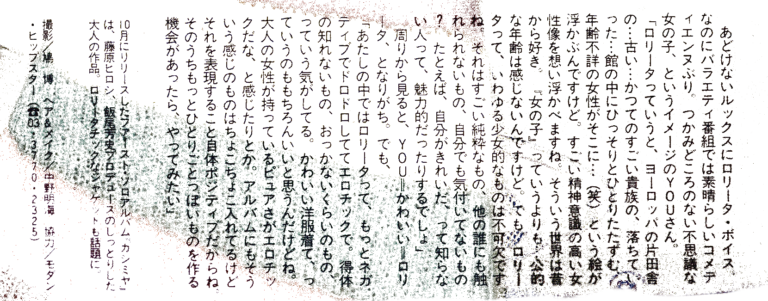 あどけないルックスにロリータ・ボイス。
なのにバラエティ番組では素晴らしいコメデ
ィエンヌぶり。つかみどころのない不思議な
女の子、というイメージのYOUさん。
「ロリータっていうと、ヨーロッパの片田舎
の…古い…かつてのすごい貴族の、落ちてし
まった…館の中にひっそりとひとりたたずむ、
年齢不詳の女性がそこに…(笑)という絵が
浮かぶんですけど。すごい精神意識の高い女
性像を想い浮かべますね。そういう世界は昔
から好き。『女の子』っていうよりも。公的
な年齢は感じないんですけど。でも、ロリー
タって、いわゆる少女的なものは不可欠です
ね。それはすごい純粋なもの、他の誰にも触
れられないもの、自分でも気付いてないもの
?たとえば、自分がきれいだ、って知らな
い人って、魅力的だったりするでしょ」
周りから見ると、YOU=かわいい=ロリ
ータ、となりがち。でも、
「あたしの中ではロリータって、もっとネガ
ティブでドロドロしててエロチックで。得体
の知れないもの、おっかないくらいのもの、
っていう気がしてる。かわいい洋服着て、っ
ていうのももちろんいいと思うんだけどね。
大人の女性が持っているピュアさがエロチッ
クだな、と感じたりとか。アルバムにもそう
いう感じのものはちょこちょこ入れてるけど
それを表現すること自体ポジティブだからね
そのうちもっとひとりごとっぽいものを作る
機会があったら、やってみたい」
10月にリリースしたファースト・ソロアルバム『カシミヤ』
は、藤原ヒロシ、飯尾芳史プロデュースのしっとりした
大人の作品。ロリータチックなジャケットも話題に
撮影/鳩 博 ヘア&メイク/中野明海 協力/モダン
・ヒップスター(☎03・3770・2325)